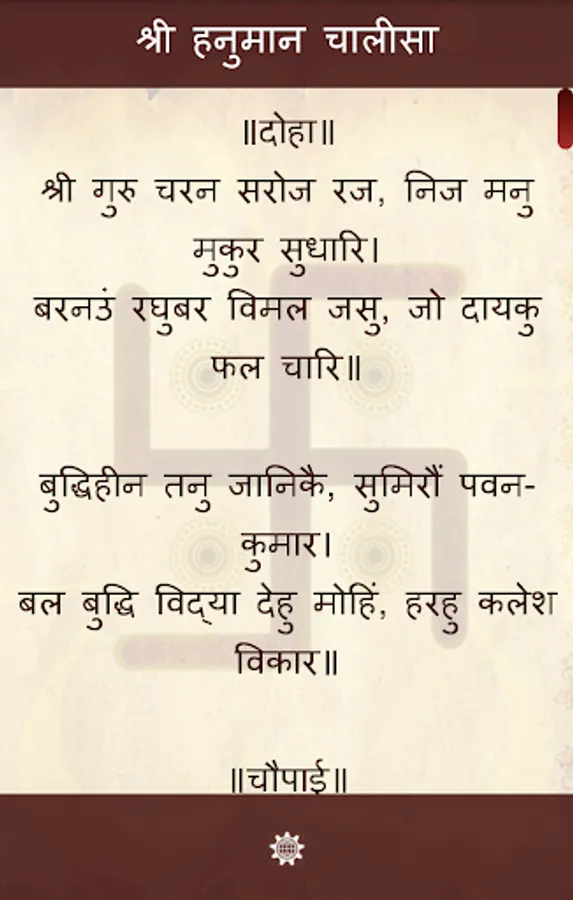 श्री हनुमान चालीसा
॥दोहा॥
श्री गुरु चरन सरोज रज, निज मनु
मुकुर सुधारि।
बरनउं रघुबर विमल जसु, जो दायकु
फल चारि॥
बुद्धिहीन तनु जानिकै, सुमिरौं पवन-
कुमार।
बल बुद्धि विद्‌या देहु मोहिं, हरहु कलेश
विकार॥
॥चौपाई॥